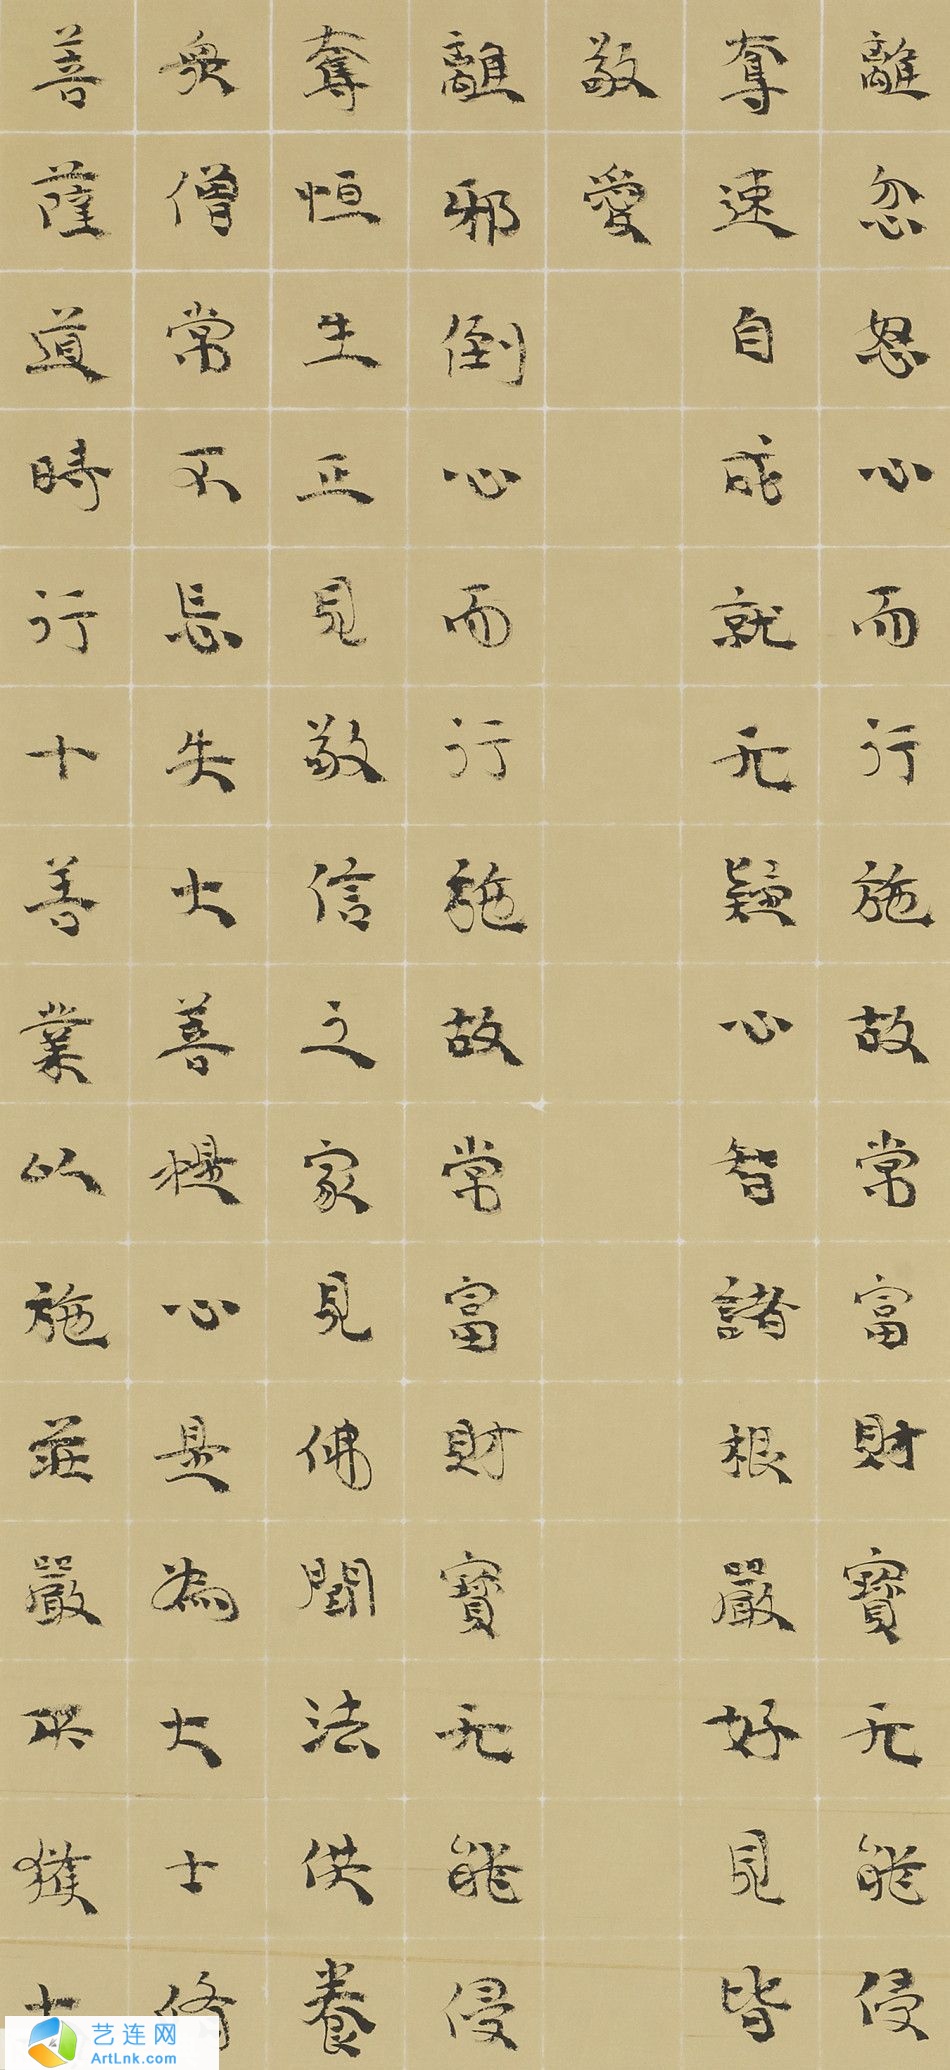 離忿怒心而行施故常富財寶无能侵
奪速自成就无疑心智諸根嚴好見皆
敬愛
離邪倒心而行施故常富財寶无能侵
奪恒生正見敬信之家見佛聞法供養
衆僧常不忘失大菩提心是為大士修
菩薩道時行十善業以施莊嚴所獲大
艺连网
ArtLnk.com